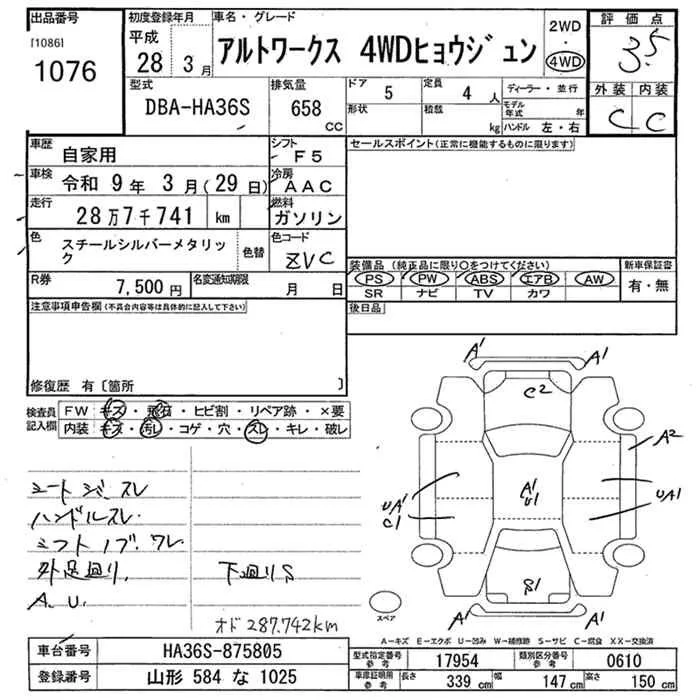 出品番号
[1086]
1076
初度登録年月
平成
28 3月
車名・グレード
アルトワークス 4WDヒョウジュン
2WD
・
4WD
評価点
3.5
外装 内装
C C
型式
DBA-HA36S
排気量
658
CC
ドア 5
定員 4 人
形状
積載 kg
ディーラー・並行
モデル年式 年
ハンドル 左・右
車歴
自家用
シフト
F5
セールスポイント(正常に機能するものに限ります)
車検
令和 9年 3月(29日)
冷房
AAC
走行
28万7千741 km
燃料
ガソリン
色
スチールシルバーメタリック
色替
色コード
ZVC
R券
7,500円
名変通知期限
月 日
装備品(純正品に限り○をつけてください)
PS PW ABS エアB AW
SR ナビ TV カワ
新車保証書
有・無
後日品
注意事項申告欄(不具合内容等は具体的に記入して下さい)
修復歴 有〔箇所 〕
検査員記入欄
FW キズ・飛石・ヒビ割・リペア跡・×要
内装 キズ・汚レ・コゲ・穴・スレ・キレ・破レ
シートジ、スレ
ハンドルスレ
シフトノブ、ワレ
外足廻り、
A.U.
下廻りS
オド287.742km
A1
A1
C2
A2
UA1
C1
A1
U1
UA1
S1
A1
A1
スペア
A-キズ E-エクボ U-凹み W-補修跡 S-サビ C-腐食 XX-交換済
車台番号
HA36S-875805
登録番号
山形 584 な 1025
型式指定番号
参考
17954
類別区分番号
参考
0610
車庫証明用
参考
長さ 339 cm
幅 147 cm
高さ 150 cm